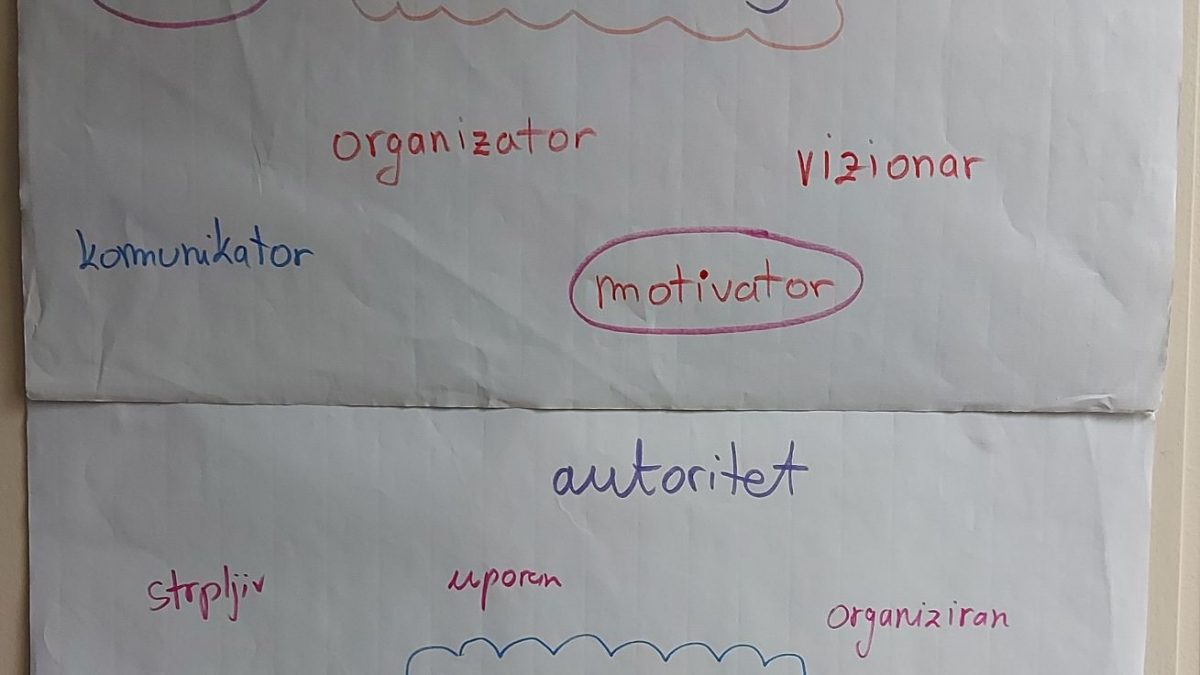 organizator
vizionar
komunikator
motivator
autoritet
strpljiv
uporan
organiziran